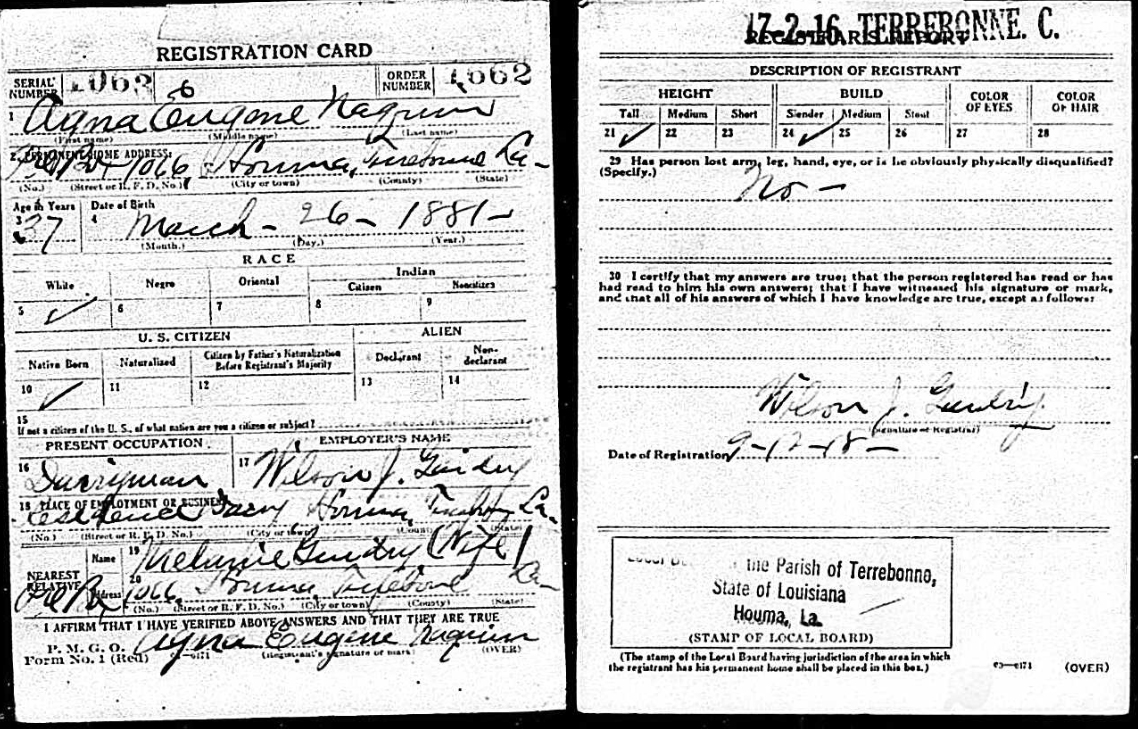 REGISTRATION CARD
SERIAL NUMBER 1062 6 ORDER NUMBER 1662
1 Agna Eugene Naquin
(First name) (Middle name) (Last name)
2 PERMANENT HOME ADDRESS:
1066 Houma, Terrebonne La-
(No.) (Street or R. F. D. No.) (City or town) (County) (State)
Age in Years Date of Birth
3 37 4 March - 26 - 1881 -
(Month.) (Day.) (Year.)
RACE
White Negro Oriental Indian
Citizen Noncitizen
5 ✓ 6 7 8 9
U. S. CITIZEN ALIEN
Native Born Naturalized Citizen by Father's Naturalization Before Registrant's Majority Declarant Non-declarant
10 ✓ 11 12 13 14
15
If not a citizen of the U. S., of what nation are you a citizen or subject?
PRESENT OCCUPATION EMPLOYER'S NAME
16 Dairyman 17 Wilson J. Guidry
18 PLACE OF EMPLOYMENT OR BUSINESS
Residence Houma La-
(No.) (Street or R. F. D. No.) (City or town) (County) (State)
NEAREST RELATIVE
Name 19 Melanie Guidry (Wife)
Address 20 1066, Houma La-
(No.) (Street or R. F. D. No.) (City or town) (County) (State)
I AFFIRM THAT I HAVE VERIFIED ABOVE ANSWERS AND THAT THEY ARE TRUE
P. M. G. O.
Form No. 1 (Red) Agna Eugene Naquin
(Registrant's signature or mark) (OVER)
17-2-16 TERREBONNE. C.
REGISTRAR'S REPORT
DESCRIPTION OF REGISTRANT
HEIGHT BUILD COLOR OF EYES COLOR OF HAIR
Tall Medium Short Slender Medium Stout
21 ✓ 22 23 24 ✓ 25 26 27 28
29 Has person lost arm, leg, hand, eye, or is he obviously physically disqualified?
(Specify.)
No -
30 I certify that my answers are true; that the person registered has read or has
had read to him his own answers; that I have witnessed his signature or mark,
and that all of his answers of which I have knowledge are true, except as follows:
Wilson J. Guidry.
(Signature of Registrar)
Date of Registration 9-12-18 -
the Parish of Terrebonne,
State of Louisiana
Houma, La.
(STAMP OF LOCAL BOARD)
(The stamp of the Local Board having jurisdiction of the area in which
the registrant has his permanent home shall be placed in this box.)
03—6171 (OVER)